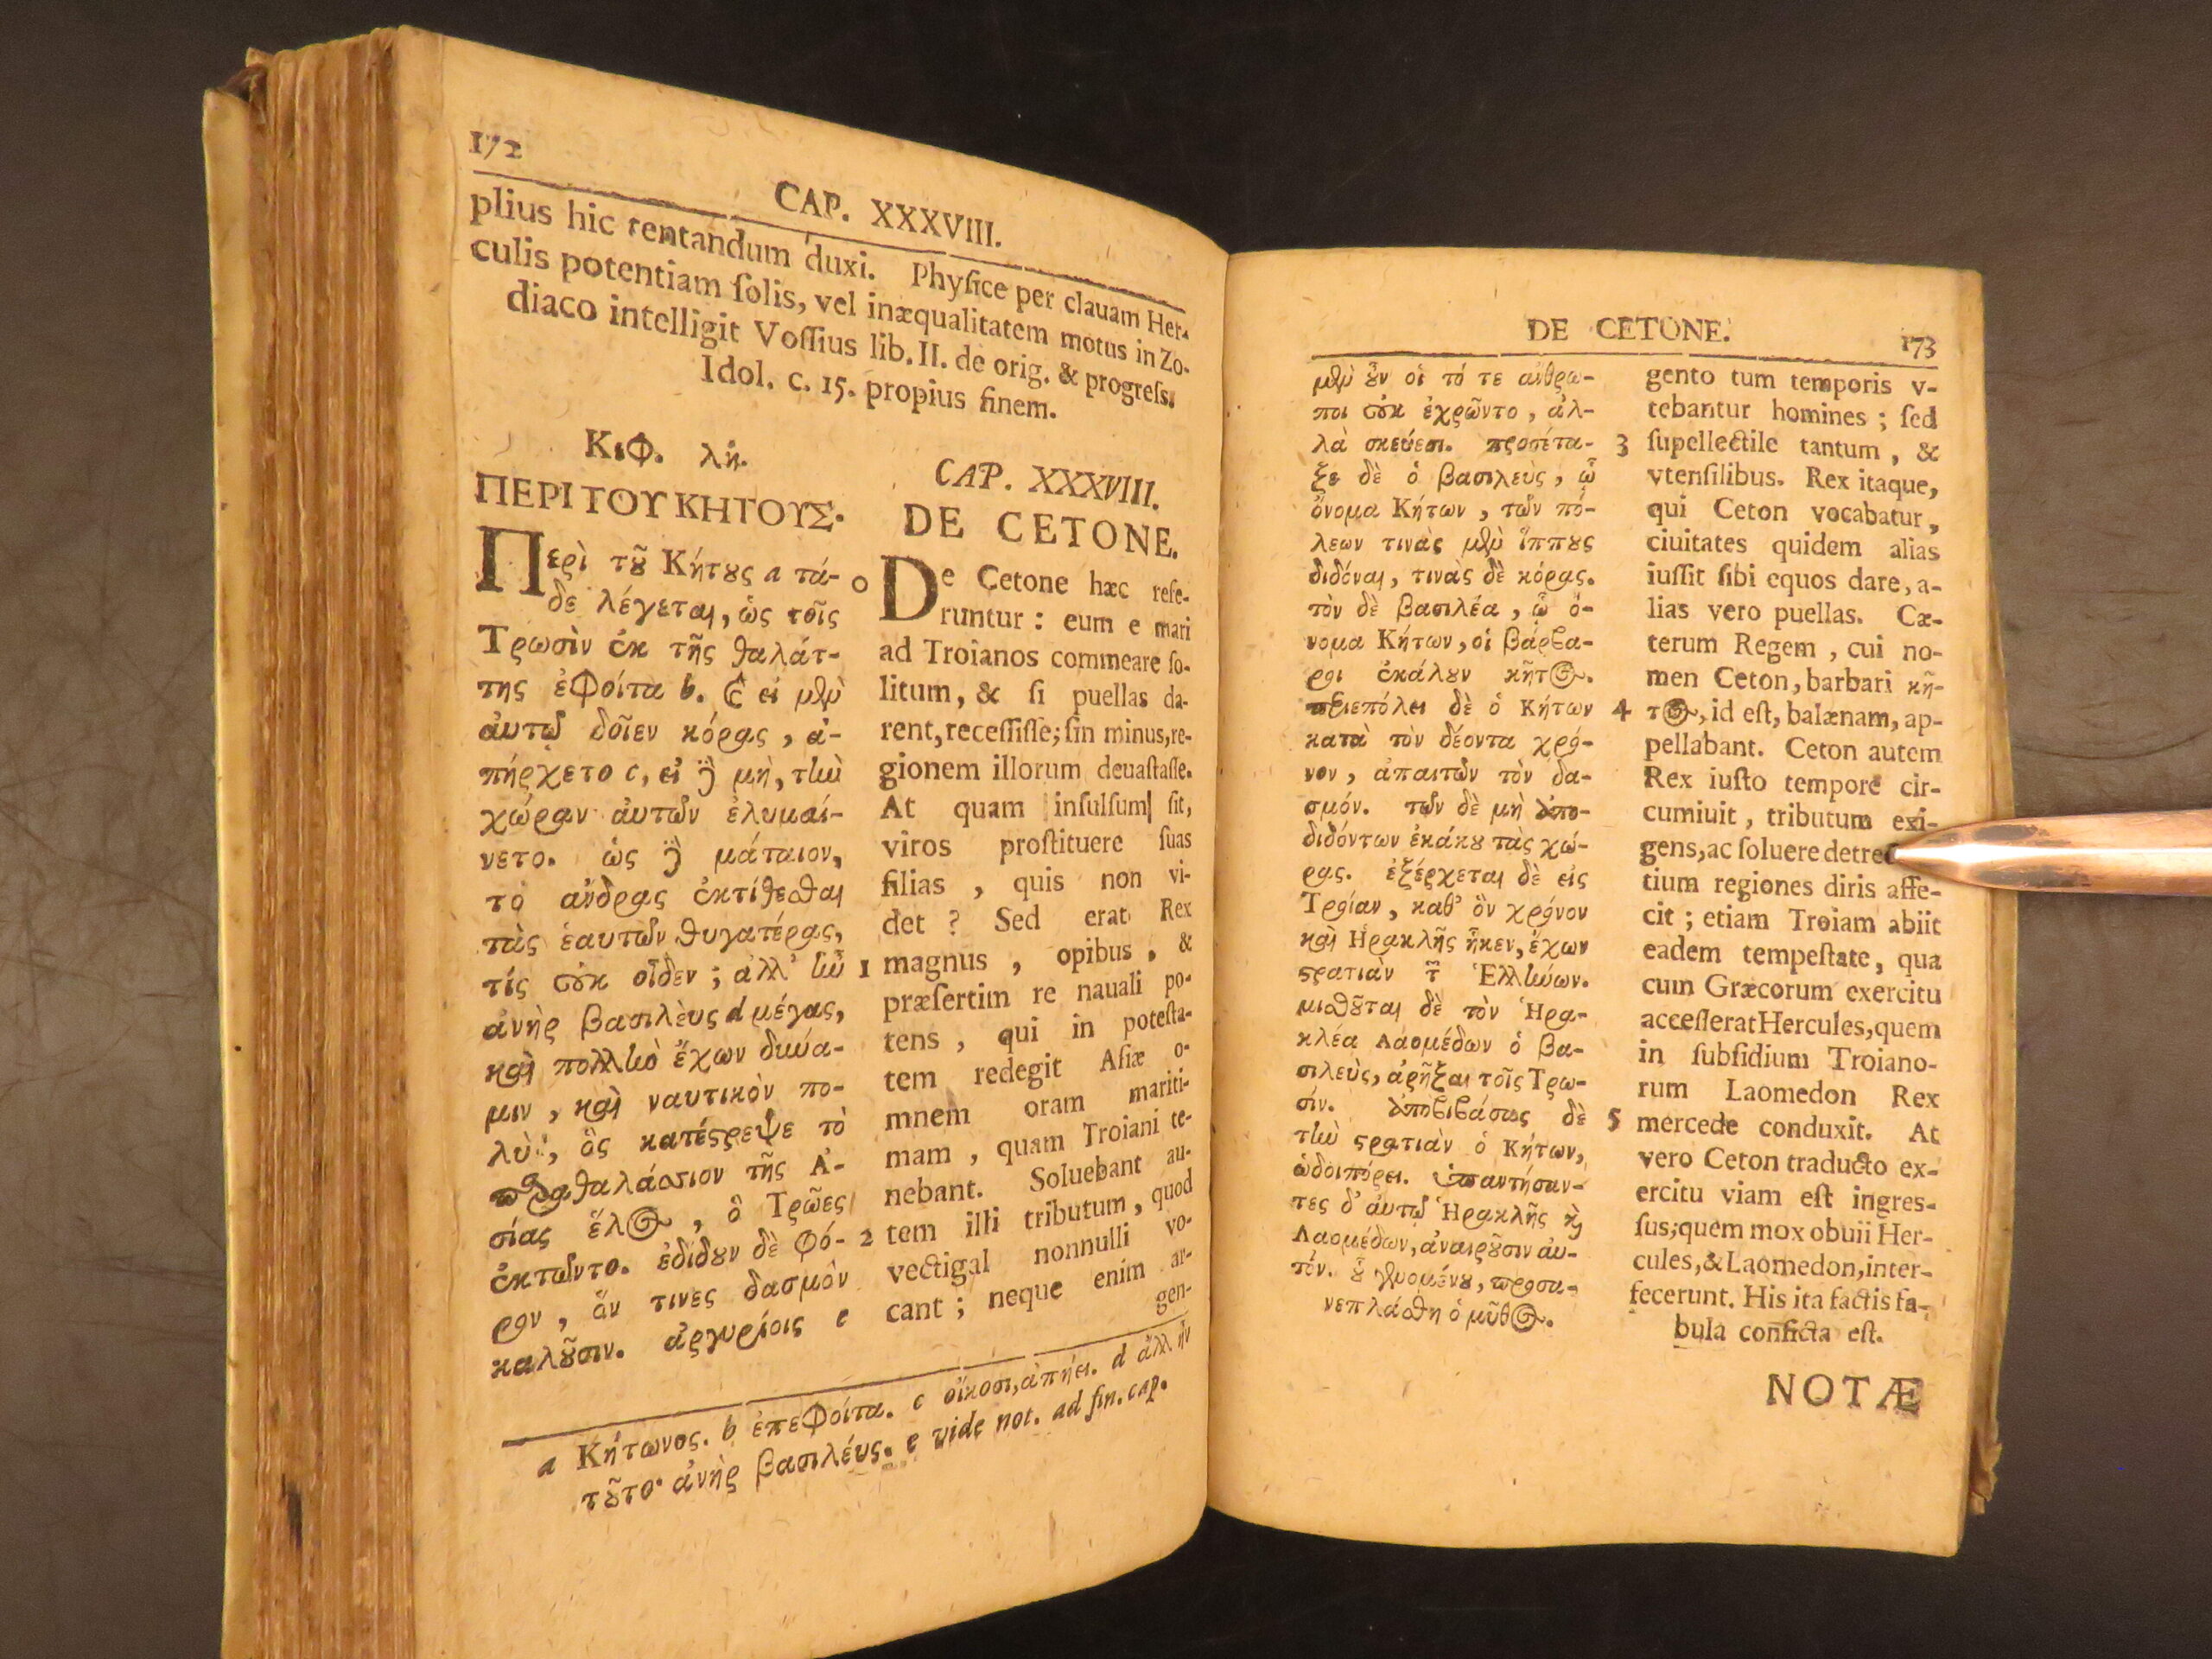 172
CAP. XXXVIII.
plius hic tentandum duxi. Phyſice per clauam Her-
culis potentiam ſolis, vel inæqualitatem motus in Zo-
diaco intelligit Voſſius lib. II. de orig. & progreſs.
Idol. c. 15. propius finem.
Κεφ. λή.
ΠΕΡΙ ΤΟΥ ΚΗΤΟΥΣ.
Περὶ τȣ͂ Κήτȣς a τά-
δε λέγεται, ὡς τοῖς
Τρωσὶν ἐκ τῆς θαλάτ-
της ἐφοίτα b. καὶ εἰ μὲν
ἀυτῷ δοῖεν κόρας, ἀ-
πήρχετο c, εἰ δὲ μὴ, τὴν
χώραν ἀυτῶν ἐλυμαί-
νετο. ὡς δὲ μάταιον,
τὸ ἄνδρας ἐκτίθεσθαι
τὰς ἑαυτῶν θυγατέρας,
τίς ȣ̓κ οἶδεν; ἀλλ' ἦν
ἀνὴρ βασιλεὺς d μέγας,
καὶ πολλὴν ἔχων δύνα-
μιν, καὶ ναυτικὸν πο-
λὺ, ὃς κατέστρεψε τὸ
παραθαλάσσιον τῆς Ἀ-
σίας ἕλος, ὃ Τρῶες
ἐκτῶντο. ἐδίδȣν δὲ φό-
ρον, ὅν τινες δασμὸν
καλȣ͂σιν. ἀργυρίοις e
0
1
2
CAP. XXXVIII.
DE CETONE.
De Cetone hæc refe-
runtur: eum e mari
ad Troianos commeare ſo-
litum, & ſi puellas da-
rent, receſſiſſe; ſin minus, re-
gionem illorum deuaſtaſſe.
At quam inſulſum ſit,
viros proſtituere ſuas
filias, quis non vi-
det? Sed erat Rex
magnus, opibus, &
præſertim re nauali po-
tens, qui in poteſta-
tem redegit Aſiæ o-
mnem oram mariti-
mam, quam Troiani te-
nebant. Soluebant au-
tem illi tributum, quod
vectigal nonnulli vo-
cant; neque enim ar-
gen-
a Κήτωνος. b ἐπεφοίτα. c οἴκοσι, ἀπήει. d ἄλλ ἦν
τȣ͂το· ἀνὴρ βασιλέυς. e vide not. ad fin. cap.
DE CETONE.
173
μὲν ȣ̓͂ν οἱ τό τε ἄνθρω-
ποι ȣ̓κ ἐχρῶντο, ἀλ-
λὰ σκεύεσι. προσέτα-
ξε δὲ ὁ βασιλεὺς, ᾧ
ὄνομα Κήτων, τῶν πό-
λεων τινὰς μὲν ἵππȣς
διδόναι, τινὰς δὲ κόρας.
τὸν δὲ βασιλέα, ᾧ ὄ-
νομα Κήτων, οἱ βάρβα-
ροι ἐκάλȣν κῆτος.
περιεπόλει δὲ ὁ Κήτων
κατὰ τὸν δέοντα χρό-
νον, ἀπαιτῶν τὸν δα-
σμόν. τῶν δὲ μὴ ἀπο-
διδόντων ἐκάκȣ τὰς χώ-
ρας. ἐξέρχεται δὲ εἰς
Τροίαν, καθ' ὃν χρόνον
καὶ Ἡρακλῆς ἧκεν, ἔχων
στρατιὰν τῶν Ἑλλήνων.
μισθȣ͂ται δὲ τὸν Ἡρα-
κλέα Λαομέδων ὁ βα-
σιλεὺς, ἀρῆξαι τοῖς Τρω-
σίν. ἀποβιβάσας δὲ
τὴν στρατιὰν ὁ Κήτων,
ὡδοιπόρει. ὑπαντήσαν-
τες δ' ἀυτῷ Ἡρακλῆς καὶ
Λαομέδων, ἀναιρȣ͂σιν ἀυ-
τόν. ȣ̔͂ γενομένȣ, προσα-
νεπλάσθη ὁ μῦθος.
3
4
5
gento tum temporis v-
tebantur homines; ſed
ſupellectile tantum, &
vtenſilibus. Rex itaque,
qui Ceton vocabatur,
ciuitates quidem alias
iuſſit ſibi equos dare, a-
lias vero puellas. Cæ-
terum Regem, cui no-
men Ceton, barbari κῆ-
τος, id eſt, balænam, ap-
pellabant. Ceton autem
Rex iuſto tempore cir-
cumiuit, tributum exi-
gens, ac ſoluere detre
tium regiones diris affe-
cit; etiam Troiam abiit
eadem tempeſtate, qua
cum Græcorum exercitu
acceſſerat Hercules, quem
in ſubſidium Troiano-
rum Laomedon Rex
mercede conduxit. At
vero Ceton traducto ex-
ercitu viam eſt ingres-
ſus; quem mox obuii Her-
cules, & Laomedon, inter-
fecerunt. His ita factis fa-
bula conficta eſt.
NOTÆ